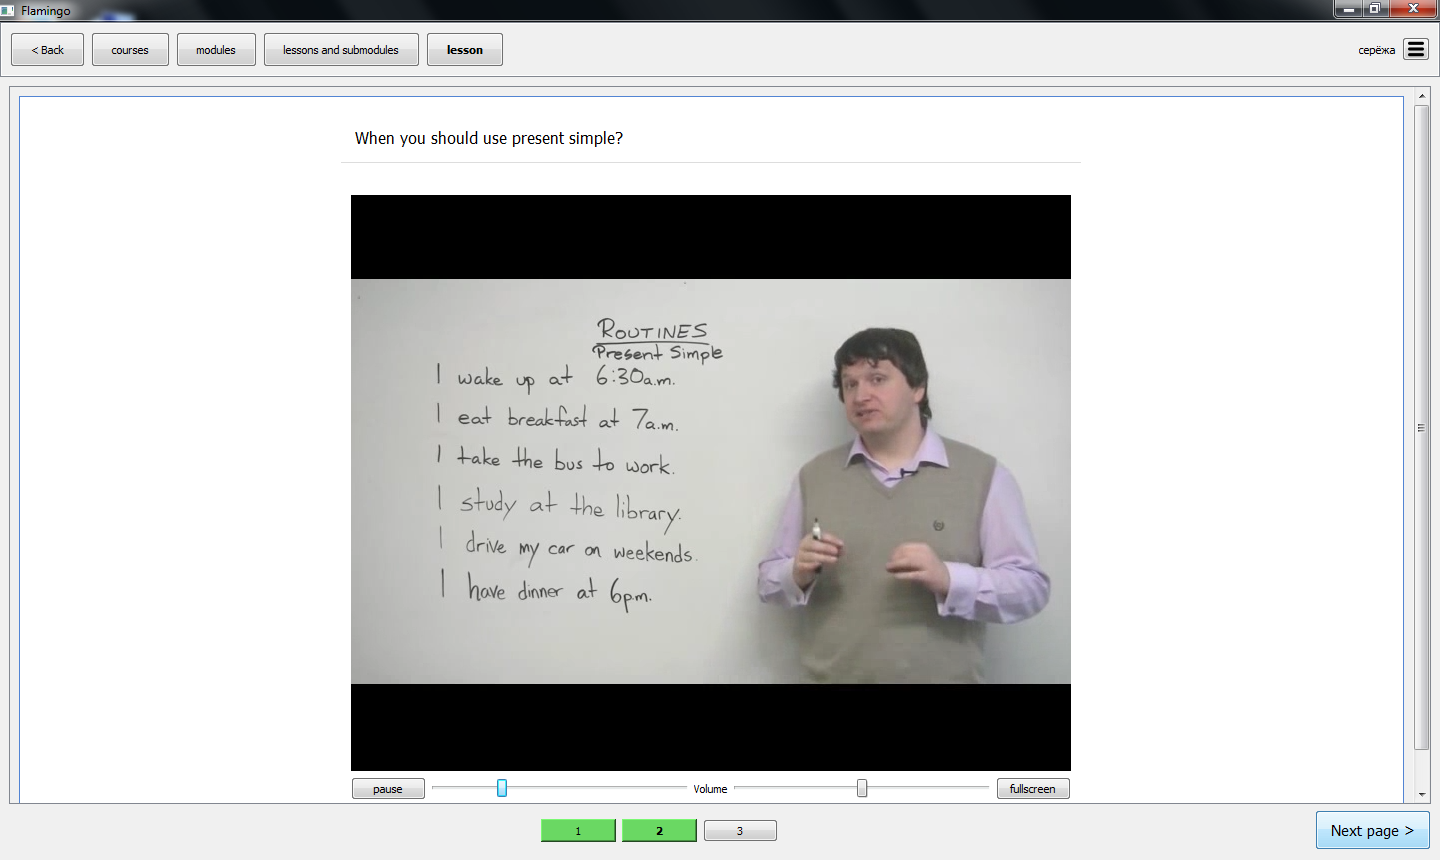 Flamingo
< Back
courses
modules
lessons and submodules
lesson
серёжа
When you should use present simple?
ROUTINES
Present Simple
I wake up at 6:30a.m.
I eat breakfast at 7a.m.
I take the bus to work.
I study at the library.
I drive my car on weekends.
I have dinner at 6p.m.
pause
Volume
fullscreen
1
2
3
Next page >